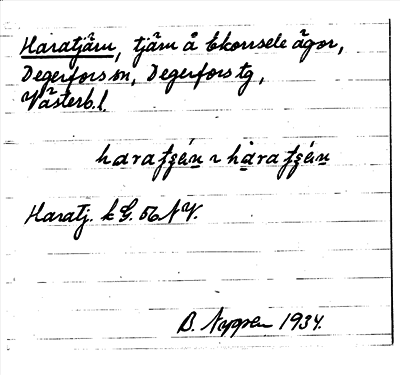 Haratjärn, tjärn å Ekorrsele ägor,
Degerfors sn, Degerfors tg,
Västerb.l.
Haratj. k G. 56 NV.
B. Nygren 1934.